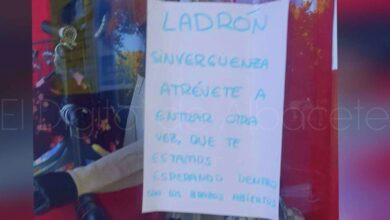 LADRÓN
SINVERGUENZA
ATRÉVETE A
ENTRAR OTRA
VEZ, QUE TE
ESTAMOS
ESPERANDO DENTRO
CON LOS BRAZOS ABIERTOS
El Digital de Albacete